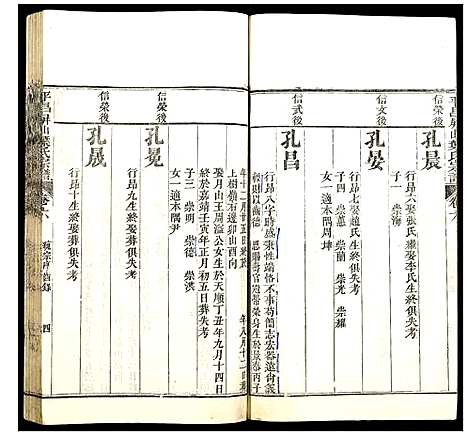 平昌屏山葉氏宗譜
卷六
孔晨
行昂六娶張氏繼娶李氏生終俱失考
子一 崇海
信文後
孔晏
行昂七娶趙氏生終俱失考
子四 崇蕙 崇蘭 崇光 崇耀
女一適本隅周坤
信武後
孔昌
行昂八字時盛張性端恪不事苟簡志宏
上樹嶺右邊卯山酉向
娶水山王周溢公女生於天順丁丑年九月十四日
終於嘉靖壬寅年正月初五日葬失考
子三 崇明 崇德 崇洪
女一適本隅尹
信榮後
孔冕
行昂九生終娶葬俱失考
信榮後
孔晟
行昂十生終娶葬俱失考
平昌屏山葉氏宗譜
卷六
四